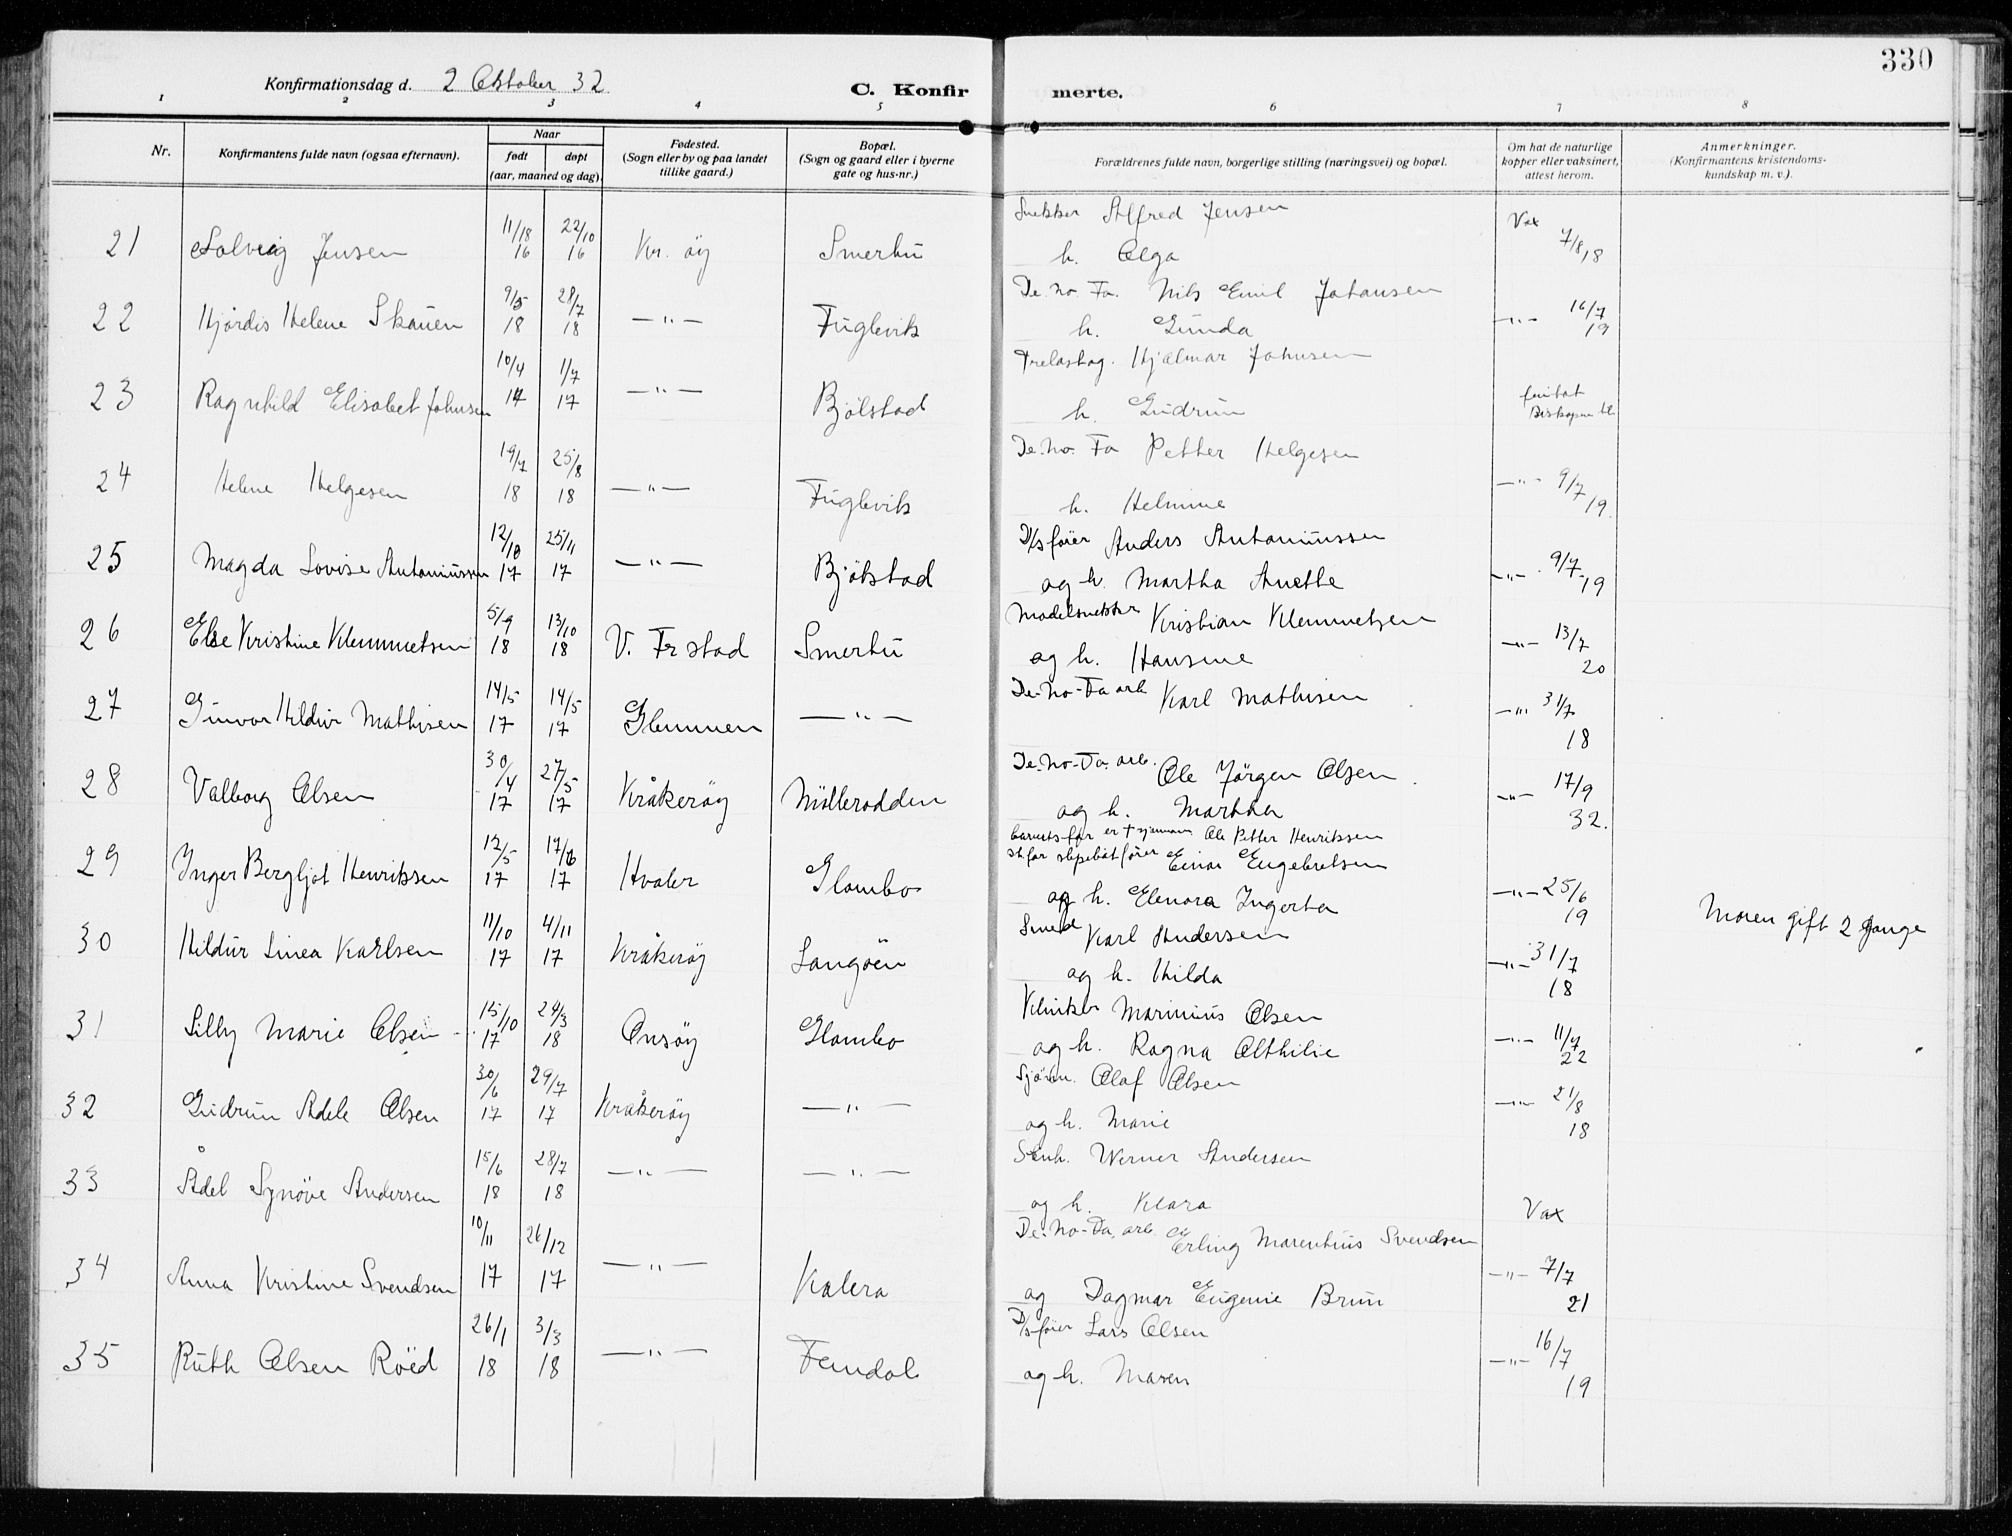 330
Konfirmationsdag d. 2 Oktober 32. C. Konfir merte.
1 2 3 4 5 6 7 8
Nr. Konfirmantens fulde navn (ogsaa efternavn). Naar født døpt (aar, maaned og dag). Fødested. (Sogn eller by og paa landet tillike gaard.) Bopæl. (Sogn og gaard eller i byerne gate og hus-nr.) Forældrenes fulde navn, borgerlige stilling (næringsvei) og bopæl. Om hat de naturlige kopper eller vaksinert, attest herom. Anmerkninger. (Konfirmantens kristendoms- kundskap m. v.).
21 Solveig Jensen 11/18 16 22/10 16 Kr. öy Smertu Snekker Alfred Jensen h. Olga Vax 7/8 18
22 Hjördis Helene Skauen 9/5 18 28/7 18 —"— Fuglevik De. No. Fa. Nils Emil Johansen h. Gunda —"— 16/7 19
23 Ragnhild Elisabet Johnsen 10/4 17 1/7 17 —"— Bjölstad Trelasthg. Hjalmar Johnsen h. Gudrun
24 Helene Helgesen 19/7 18 25/8 18 —"— Fuglevik De. No. Fa Petter Helgesen h. Helmine —"— 9/7 19.
25 Magda Lovise Antoniussen 12/10 17 25/11 17 —"— Bjölstad D/sförer Anders Antoniussen og h. Martha Anette —"— 9/7 19
26 Else Kristine Klemmetsen 5/9 18 13/10 18 V. Fr stad Smertu Modelsnekker Kristian Klemmetsen og h. Hansine —"— 13/7 20
27 Gunvor Hildur Mathisen 14/5 17 14/5 17 Glemmen —"— De-No-Fa arb Karl Mathisen —"— 31/7 18
28 Valborg Olsen 30/4 17 27/5 17 Kråkeröy Müllerodden De-No-Fa. arb. Ole Jörgen Olsen og h. Martha —"— 17/9 32.
29 Inger Bergljot Henriksen 12/5 17 17/6 17 Hvaler Glombo barnets far er † sjömann Ole Petter Henriksen stfar slepebåtförer Einar Engebretsen og h. Elenora Ingerta —"— 25/6 19 Moren gift 2 gange
30 Hildur Linea Karlsen 11/10 17 4/11 17 Kråkeröy Langöen Smed Karl Andersen og h. Hilda —"— 31/7 18
31 Lilly Marie Olsen 15/10 17 24/3 18 Onsöy Glombo Klinker Marinius Olsen og h. Ragna Othilie —"— 11/7 22
32 Gudrun Adele Olsen 30/6 17 29/7 17 Kråkeröy —"— Sjöm. Olaf Olsen og h. Marie —"— 21/8 18
33 Ådel Synöve Andersen 15/6 18 28/7 18 —"— —"— Werner Andersen og h. Klara Vax
34 Anna Kristine Svendsen 10/11 17 26/12 17 —"— Kalera De-No-Fa, arb. Erling Marentius Svendsen og Dagmar Eugenie Brun —"— 7/7 21
35 Ruth Olsen Röed 26/1 18 3/3 18 —"— Femdal D/sförer Lars Olsen og h. Maren —"— 16/7 19